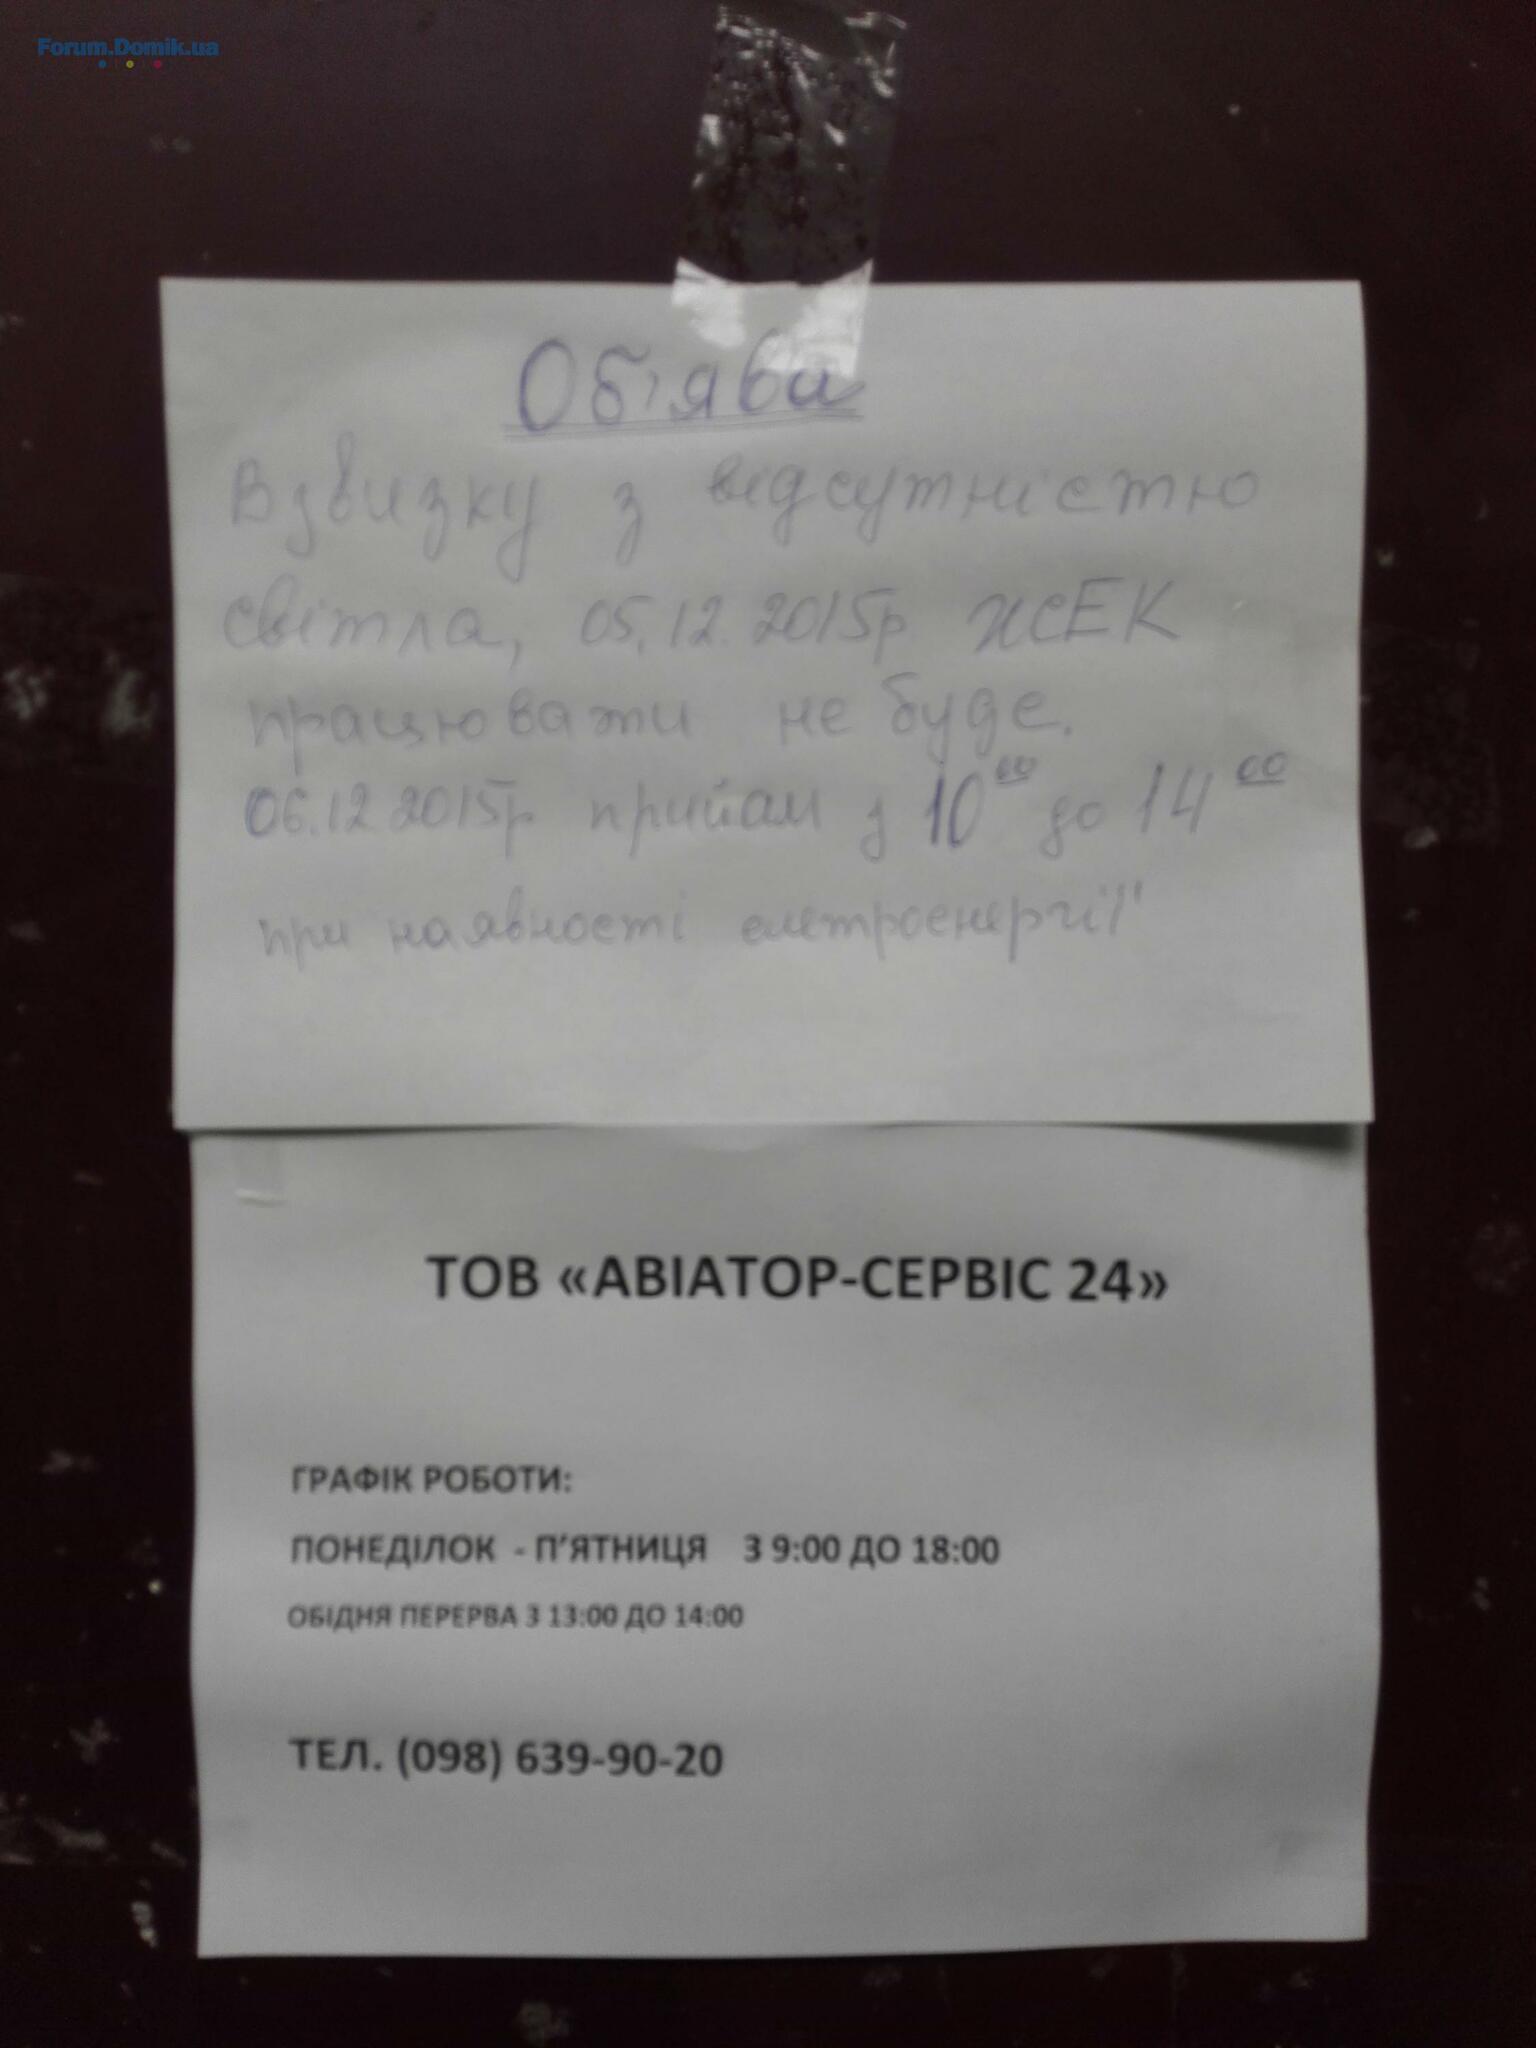 Forum.Domik.ua
Об'ява
Взвизку з відсутністю
світла, 05.12.2015р ЖЕК
працювати не буде.
06.12 2015р прийом з 10⁰⁰ до 14⁰⁰
при наявності елетроенергії
ТОВ «АВІАТОР-СЕРВІС 24»
ГРАФІК РОБОТИ:
ПОНЕДІЛОК - П'ЯТНИЦЯ З 9:00 ДО 18:00
ОБІДНЯ ПЕРЕРВА З 13:00 ДО 14:00
ТЕЛ. (098) 639-90-20